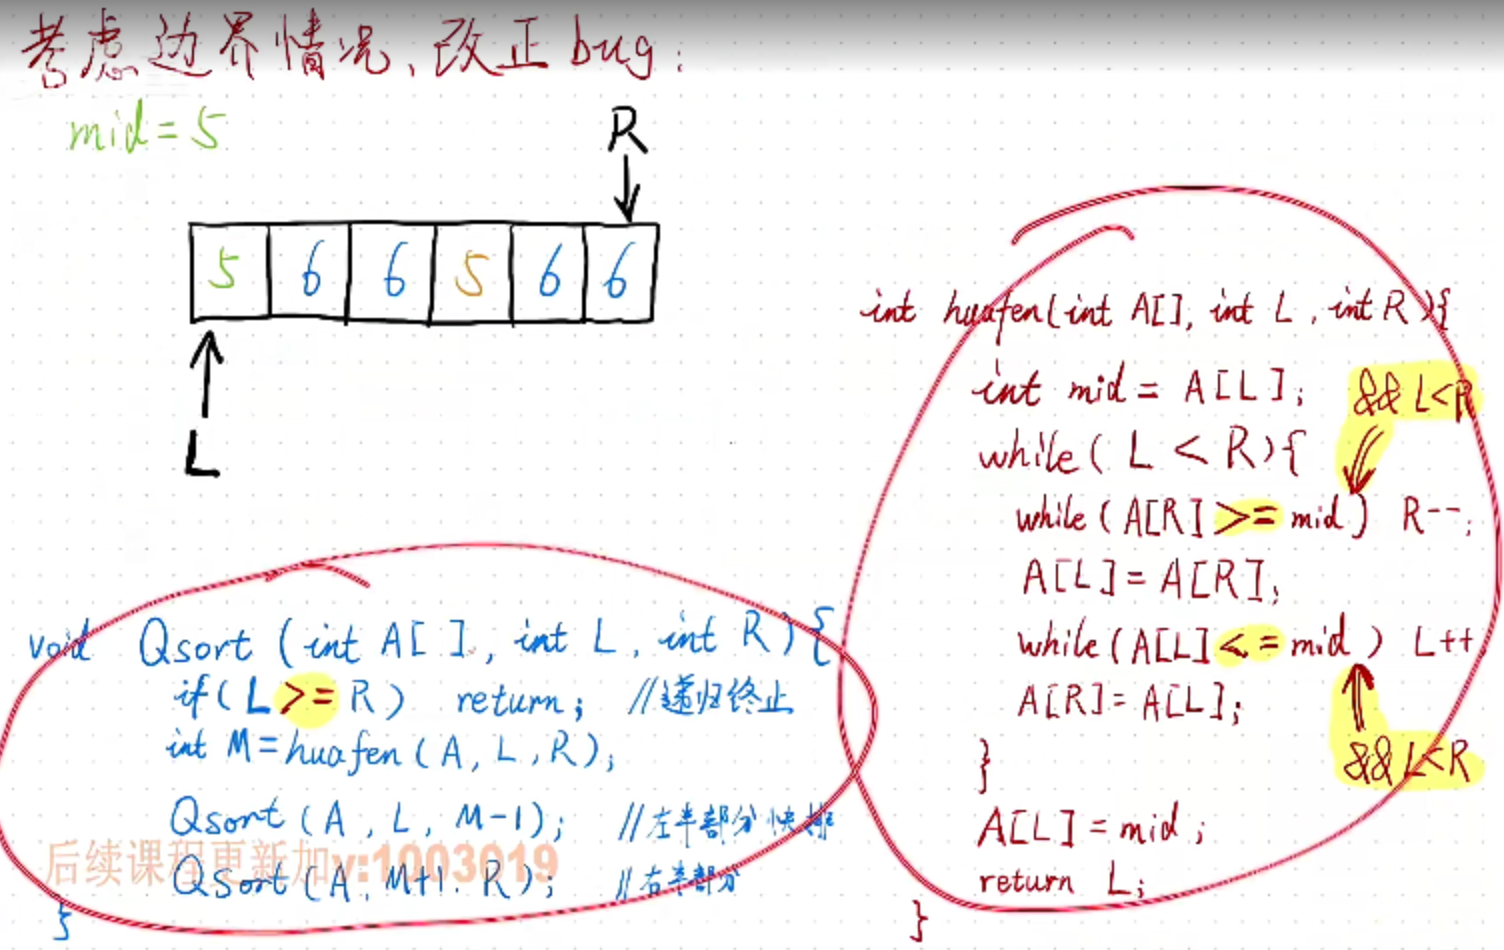 考虑边界情况、改正bug:
mid=5
R
5 6 6 5 6 6
L
int huafen(int A[], int L, int R){
int mid = A[L];
&& L<R
while( L < R){
while(A[R] >= mid) R--;
A[L]=A[R];
while(A[L]<=mid) L++
A[R]=A[L];
&& L<R
}
A[L]=mid;
return L;
}
void Qsort (int A[], int L, int R){
if(L >= R) return; //递归终止
int M=huafen(A, L, R);
Qsort(A, L, M-1); //左半部分快排
后续课程更新加v:1003019
Qsort(A, M+1, R); //右半部分
}